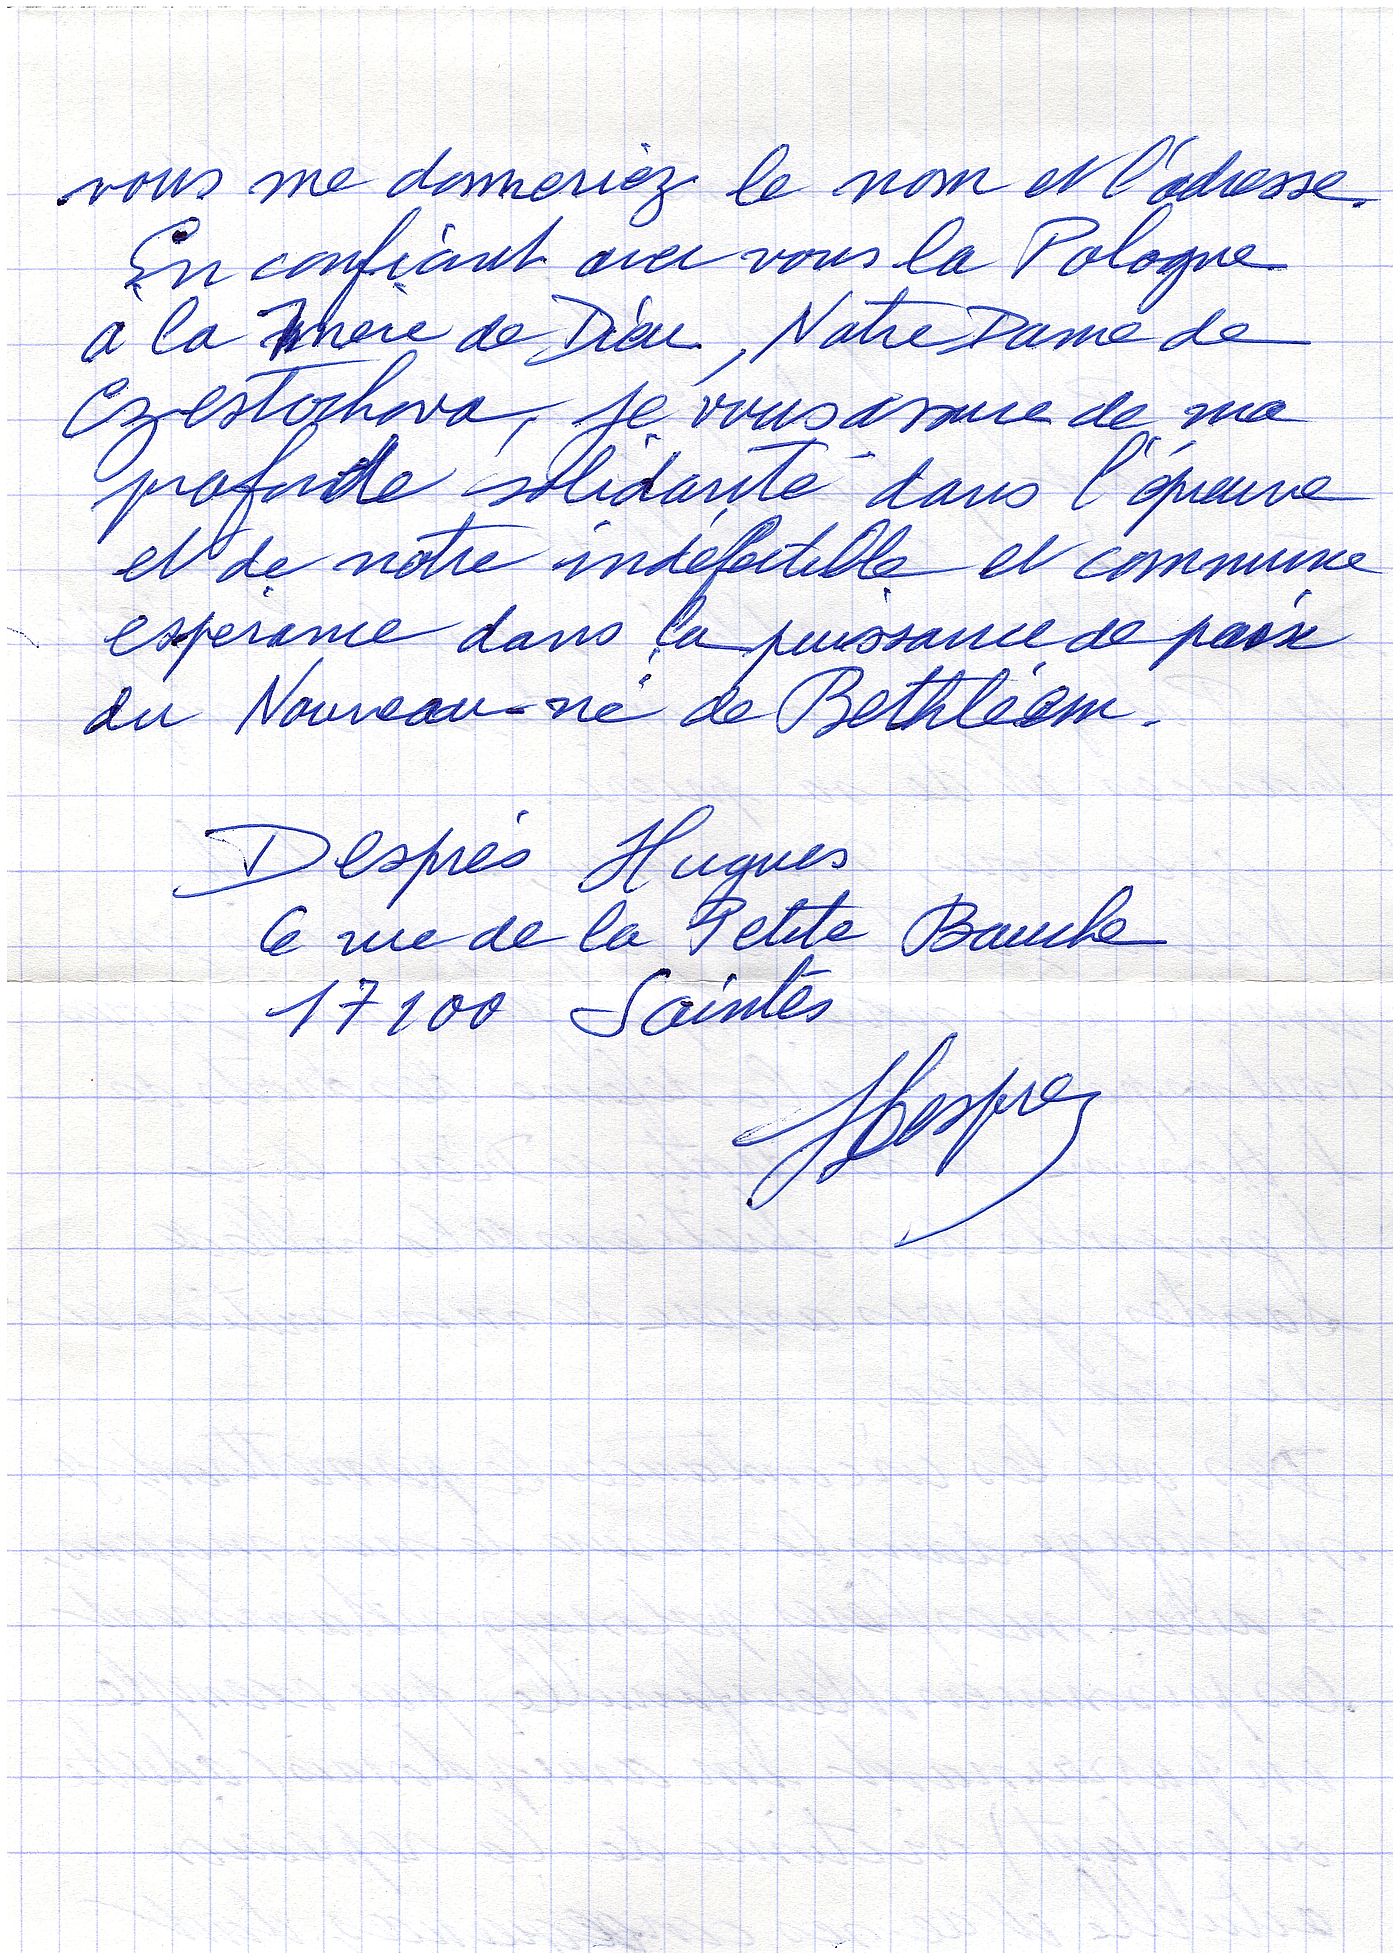 vous me donneriez le nom et l'adresse.
En confiant avec vous la Pologne
à la mère de Dieu, Notre Dame de
Czestochova, je vous assure de ma
profonde solidarité dans l'épreuve
et de notre indéfectible et commune
espérance dans la puissance de paix
du Nouveau-né de Bethléem.
Després Hugues
6 rue de la Petite Bauche
17100 Saintes
HDesprez